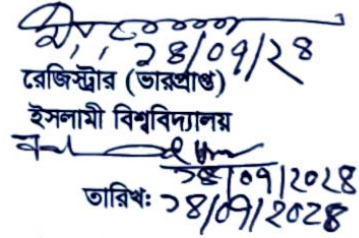 ১৪/০৭/২৪
রেজিস্ট্রার (ভারপ্রাপ্ত)
ইসলামী বিশ্ববিদ্যালয়
১৪/০৭/২০২৪
তারিখ: ১৪/০৭/২০২৪